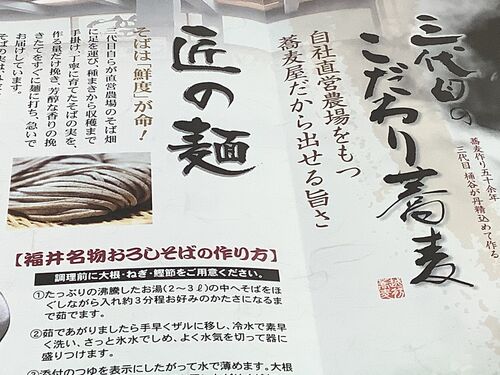 三代目の
こだわり蕎麦
蕎麦作り五十余年
三代目 桶谷が丹精込めて作る
自社直営農場をもつ
蕎麦屋だから出せる旨さ
匠の麺
そばは「鮮度」が命!
三代目自らが直営農場のそば畑
に足を運び、種まきから収穫まで
手掛け、丁寧に育てたそばの実を、
作る量だけ挽き、芳醇な香りの挽
きたてをすぐに麺に打ち、急いで
お届けしています。
【福井名物おろしそばの作り方】
調理前に大根・ねぎ・鰹節をご用意ください。
①たっぷりの沸騰したお湯(2〜3ℓ)の中へそばをほ
ぐしながら入れ約3分程お好みのかたさになるま
で茹でます。
②茹であがりましたら手早くザルに移し、冷水で素早
く洗い、さっと氷水でしめ、よく水気を切って器に
盛りつけます。
③添付のつゆを表示にしたがって水で薄めます。大根